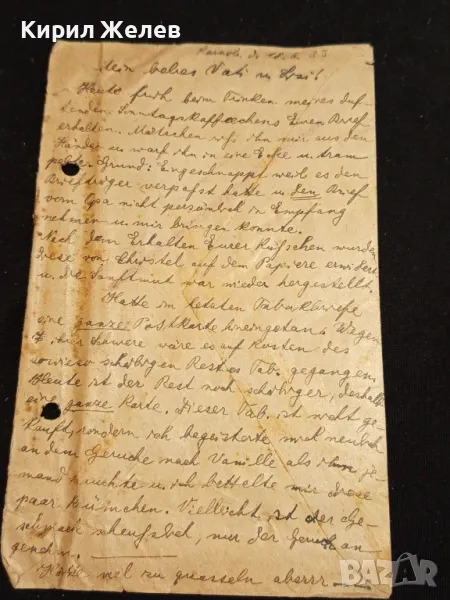 Кирил Желев
Mein liebes Vati u
Heute früh beim Trinken meines duf-
tenden Sonntagskaffeechens Euren Brief
erhalten. riß ihn mir aus den
Händen u warf ihn in eine Ecke u tram
pelte. Grund: Eingeschnappt weil es den
Briefträger verpaßt hatte u den Brief
vom Opa nicht persönlich in Empfang
nehmen u mir bringen konnte.
Nach dem Erhalten Eurer Küßchen wurden
diese von Christel auf dem Papiere erwidert
u. die Sanftmut war wieder hergestellt.
Hatte im letzten Tabakbriefe
eine ganze Postkarte hineingetan. Wegen
wäre es auf Kosten des
sowieso schäbigen Restes Tab. gegangen,
Heute ist der Rest noch schäbiger, deshalb
eine ganze Karte. Dieser Tab. ist nicht ge-
kauft, sondern ich begeisterte mich neulich
an dem Geruche nach Vanille als ihn je-
mand rauchte u. ich bettelte mir diese
paar Krümchen. Vielleicht ist der Ge-
schmack scheußlich, nur der Geruch an
genehm.
viel zu aberrr
bazar.bg